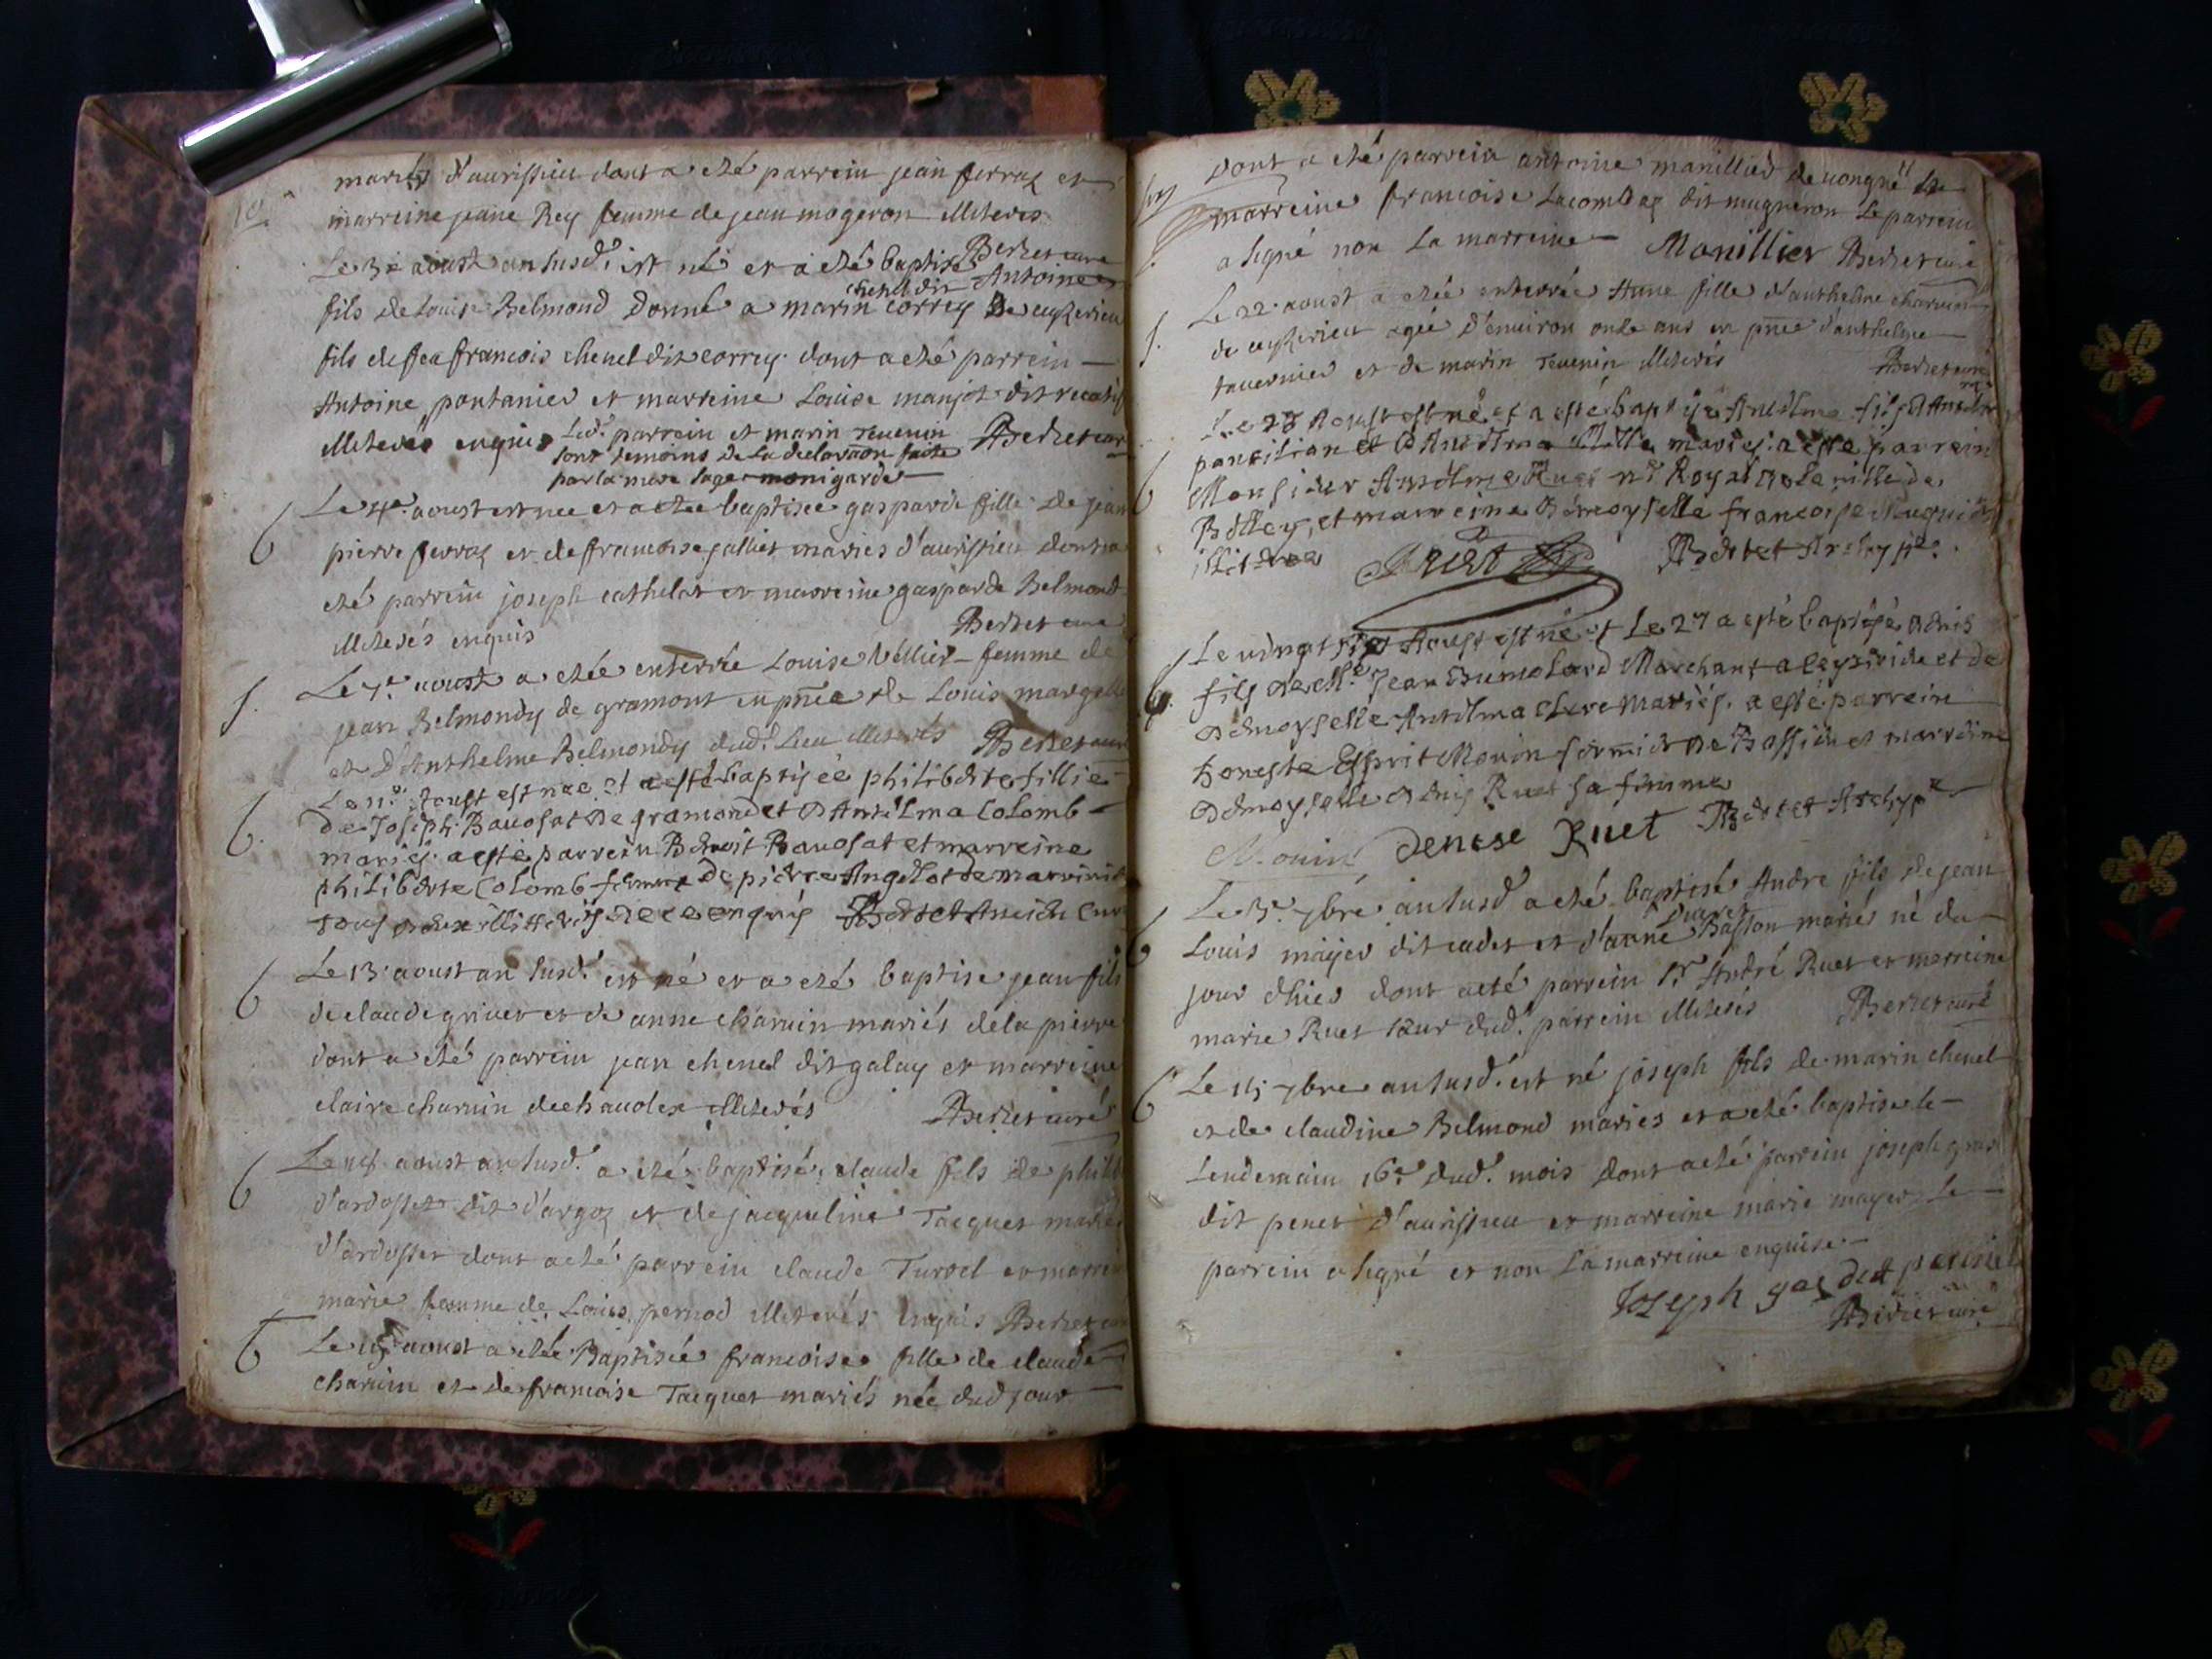 mariés d'aurissieu dont a eté parrein jean ferraz et
marreine jeane Rey femme de jean mogeron illiterés
Bertet curé
Le 3e aoust an susd. est né et a eté baptisé Antoine
chenel dit
fils de Louise Belmond donné a marin correy de ceyzerieu
fils de feu francois chenel dit correy dont a eté parrein
Antoine pontanier et marreine Louise manjot dit
illiterés enquis Led. parrein et marin Tevenin Bertet curé
sont temoins de la declaraon faite
par la mere sage monigarde
6 Le 4e aoust est nee et a eté baptisée gasparde fille de jean
pierre ferraz et de francoise galliet mariés d'aurissieu dont a
eté parrein joseph cathelat et marreine gasparde Belmond
illiterés enquis Bertet curé
f. Le 7e aoust a etée enterrée Louise Vellier femme de
jean Belmondy de gramont en pnce de Louis
et d'Anthelme Belmondy dud. lieu illiterés Bertet curé
6. Le 11e Aoust est nee et a esté baptisée philiberte fillie
de Joseph Bavosat de gramond et d'Antelma Colomb
mariés. a esté parrein Benoit Bavosat et marreine
philiberte Colomb femme de pierre Angelot de
tous deux illitterés de ce enquis Bertet Ancien Curé
6 Le 13 aoust an susd. est né et a eté baptise jean fils
de claude grivet et de anne charvin mariés de la pierre
dont a eté parrein jean chenel dit galay et marreine
claire charvin de chavolex illiterés Bertet curé
6 Le aoust an susd. a eté baptisé claude fils de
d'ardosset dit d'argoz et de jacqueline Tacquet mariés
d'ardosset dont a eté parrein claude Turrel et
marie femme de Louis pernod illiterés enquis Bertet curé
6 Le aoust a etée Baptisée francoise fille de claude
charvin et de francoise Tacquet mariés née dud jour
dont a eté parrein antoine manillier de vongne et
marreine francoise Lacombaz dit mugneron Le parrein
a signé non la marreine Manillier Bertet curé
f. Le 22 aoust a etée enterrée Anne fille d'anthelme charvin
de ceyzerieu agée d'environ onze ans en pnce d'anthelme
tavernier et de marin Tevenin illiterés Bertet curé
6 Le Aoust est né et a esté baptisé Antelme fils d'Antelme
et d'Antelma mariés. a esté parrein
Monsieur Antelme Ruet nre Royal de la ville de
Belley, et marreine Demoyselle francoise
illiteree Ruet Bertet Archypre.
6 Le vingt Aoust est né et Le 27 a esté baptisé denis
fils de Me Jean Dumolard Marchant a ceyzeride et de
Demoyselle Antelma mariés. a esté parrein
honeste Esprit Mouin fermier de Bossin et marreine
demoyselle denis Ruet sa femme
Mouin Denise Ruet Bertet Archypre
6 Le 3e 7bre an susd a eté baptisé Andre fils de jean
Louis majer dit cadet et d'anne Baston mariés né du
jour d'hier dont a eté parrein Sr André Ruet et marreine
marie Ruet sœur dud. parrein illiterés Bertet curé
6 Le 15 7bre an susd. est né joseph fils de marin chenel
et de claudine Belmond mariés et a eté baptisé le
Lendemain 16e dud. mois dont a eté parrein joseph
dit penet d'aurissieu et marreine marie mayer le
parrein a signé et non la marreine enquise
Joseph
Bertet curé